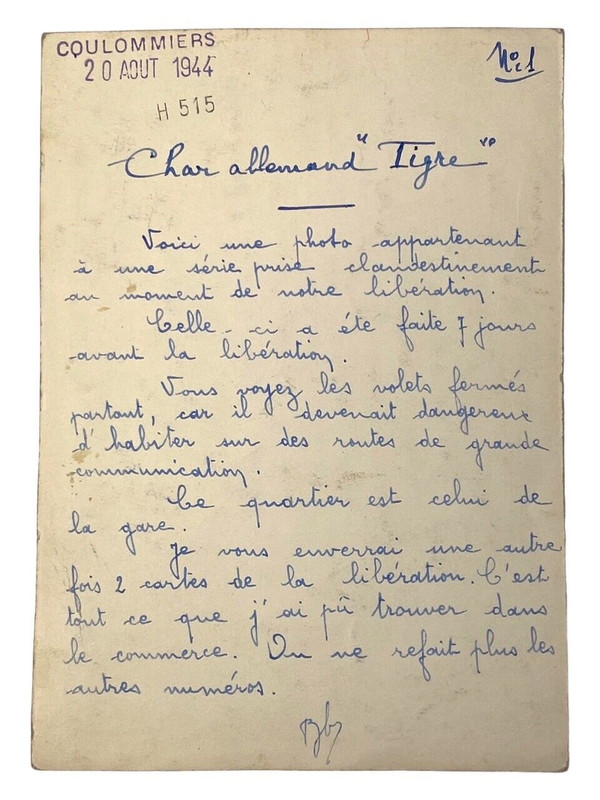 COULOMMIERS
20 AOUT 1944
H 515
N° 1
Char allemand "Tigre"
Voici une photo appartenant
à une série prise clandestinement
au moment de notre libération.
Celle-ci a été faite 7 jours
avant la libération.
Vous voyez les volets fermés
partout, car il devenait dangereux
d'habiter sur des routes de grande
communication.
Ce quartier est celui de
la gare.
Je vous enverrai une autre
fois 2 cartes de la libération. C'est
tout ce que j'ai pû trouver dans
le commerce. On ne refait plus les
autres numéros.